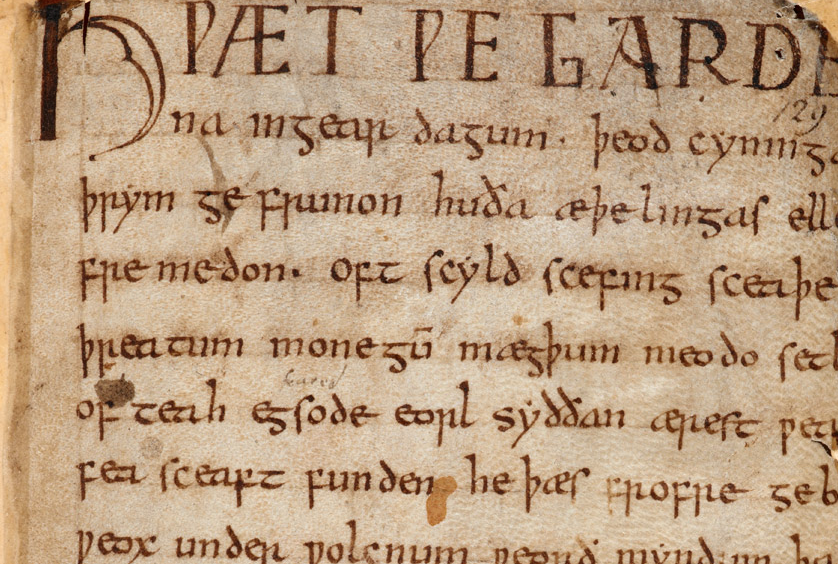 HǷÆT ǷE GARDE
129
na ingear dagum. þeod cyninga
þrym ge frunon huða æþelingas ell
fremedon. oft scyld scefing sceaþe
þreatum monegū mægþum meodo setl
of teah egsode eorl syððan ærest ƿea
fea sceaft funden he þæs frofre geb
ƿeox under ƿolcnum ƿeorð myndum þa